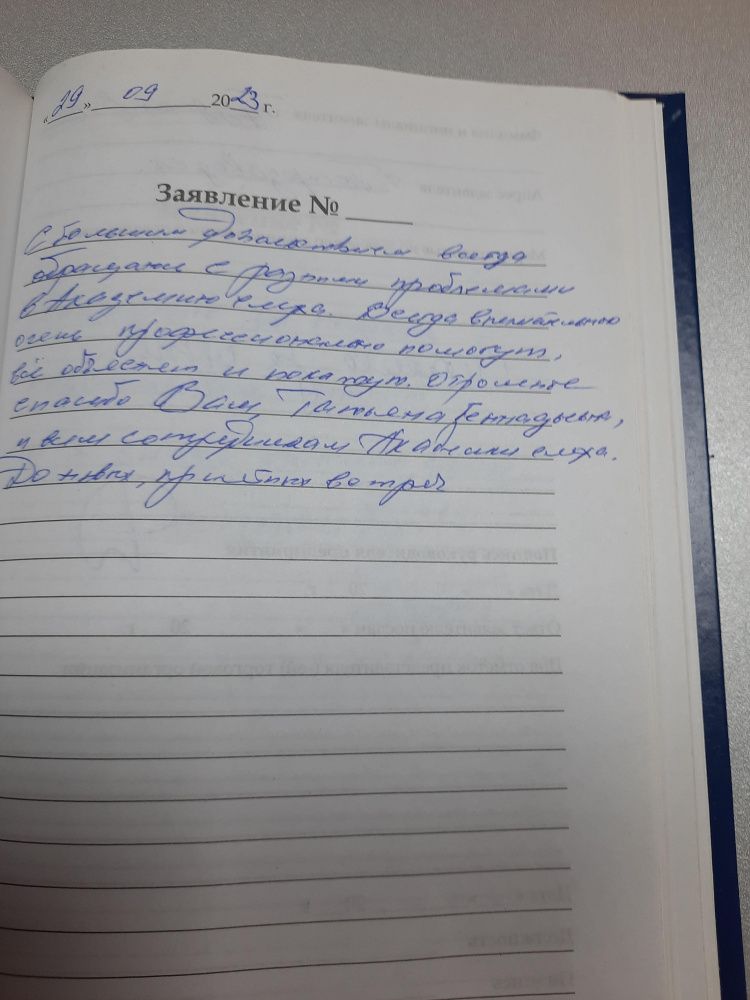 «29» 09 2023 г.
Заявление № ____
С большим удовольствием всегда
обращаюсь с разными проблемами
в Академию слуха. Всегда внимательно
очень профессионально помогут,
всё объяснят и покажут. Огромное
спасибо Вам, Татьяна Геннадьевна,
и всем сотрудникам Академии слуха.
До новых, приятных встреч